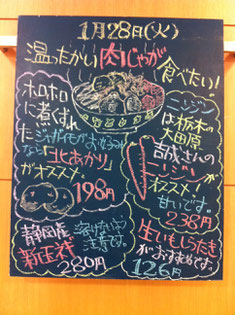 1月28日(火)
温ったかい肉じゃが
食べたい!
ホロホロ
に煮くずれ
たジャガイモがお好み
なら「北あかり」
がオススメ。
198円
ニンジン
は栃木の
大田原
吉成さんの
ニンジン
がオススメ!
甘いです。
238円
静岡産
新玉ネギ
溶けないよう
注意です。
280円
生いもしらたき
がおすすめです。
126円